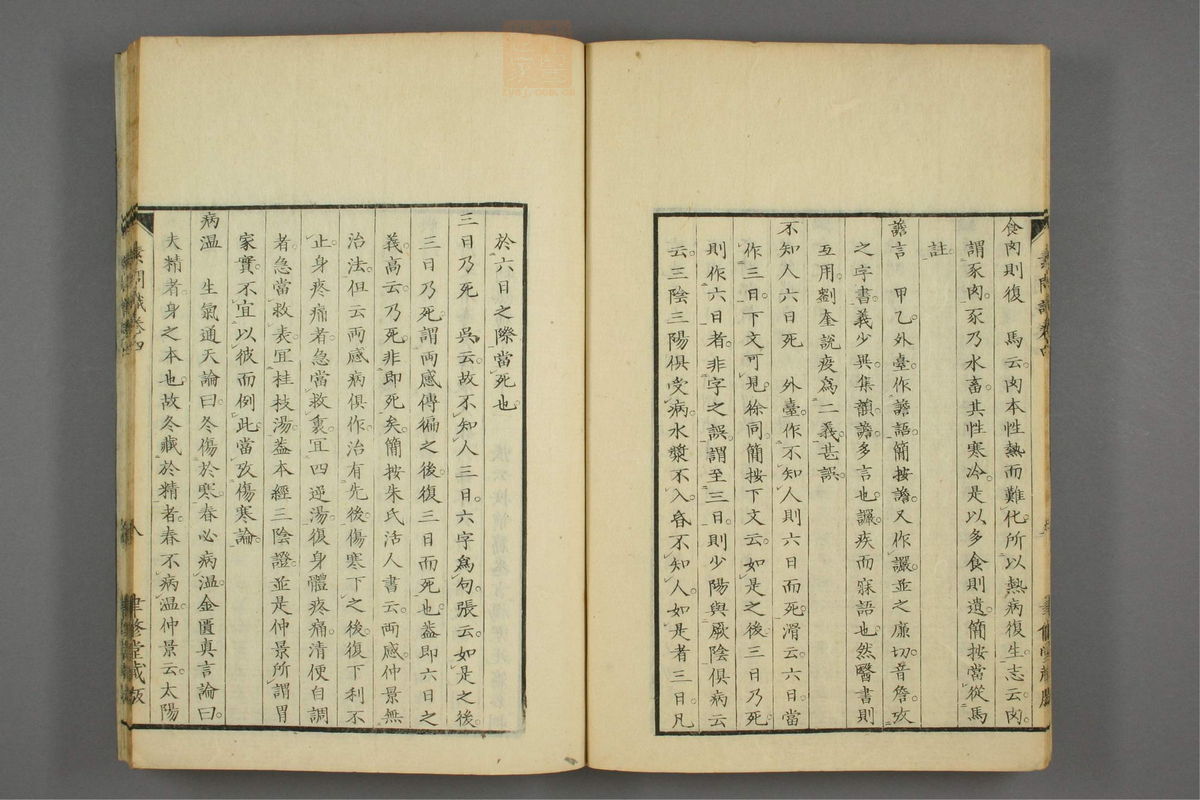 食肉則復　馬云肉本性熱而難化所以熱病復生志云肉
謂豕肉豕乃水畜其性寒冷是以多食則遺簡按當從馬
註
譫言　甲乙外臺作譫語簡按譫又作讝並之廉切音詹攷
之字書義少異集韻譫多言也讝疾而寐語也然醫書則
互用劉奎說疫爲二義甚誤
不知人六日死　外臺作不知人則六日而死滑云六日當
作三日下文可見徐同簡按下文云如是之後三日乃死
則作六日者非字之誤謂至三日則少陽與厥陰俱病云
云三陰三陽俱受病水漿不入昏不知人如是者三日凡
於六日之際當死也
三日乃死　吳云故不知人三日六字爲句張云如是之後
三日乃死謂兩感傳徧之後復三日而死也蓋即六日之
義高云乃死非即死矣簡按朱氏活人書云兩感仲景無
治法但云兩感病俱作治有先後傷寒下之後復下利不
止身疼痛者急當救裏宜四逆湯復身體疼痛清便自調
者急當救表宜桂枝湯蓋本經三陰證並是仲景所謂胃
家實不宜以彼而例此當攷傷寒論
病溫　生氣通天論曰冬傷於寒春必病溫金匱真言論曰
夫精者身之本也故冬藏於精者春不病溫仲景云太陽
素問識卷四
八
聿修堂藏版